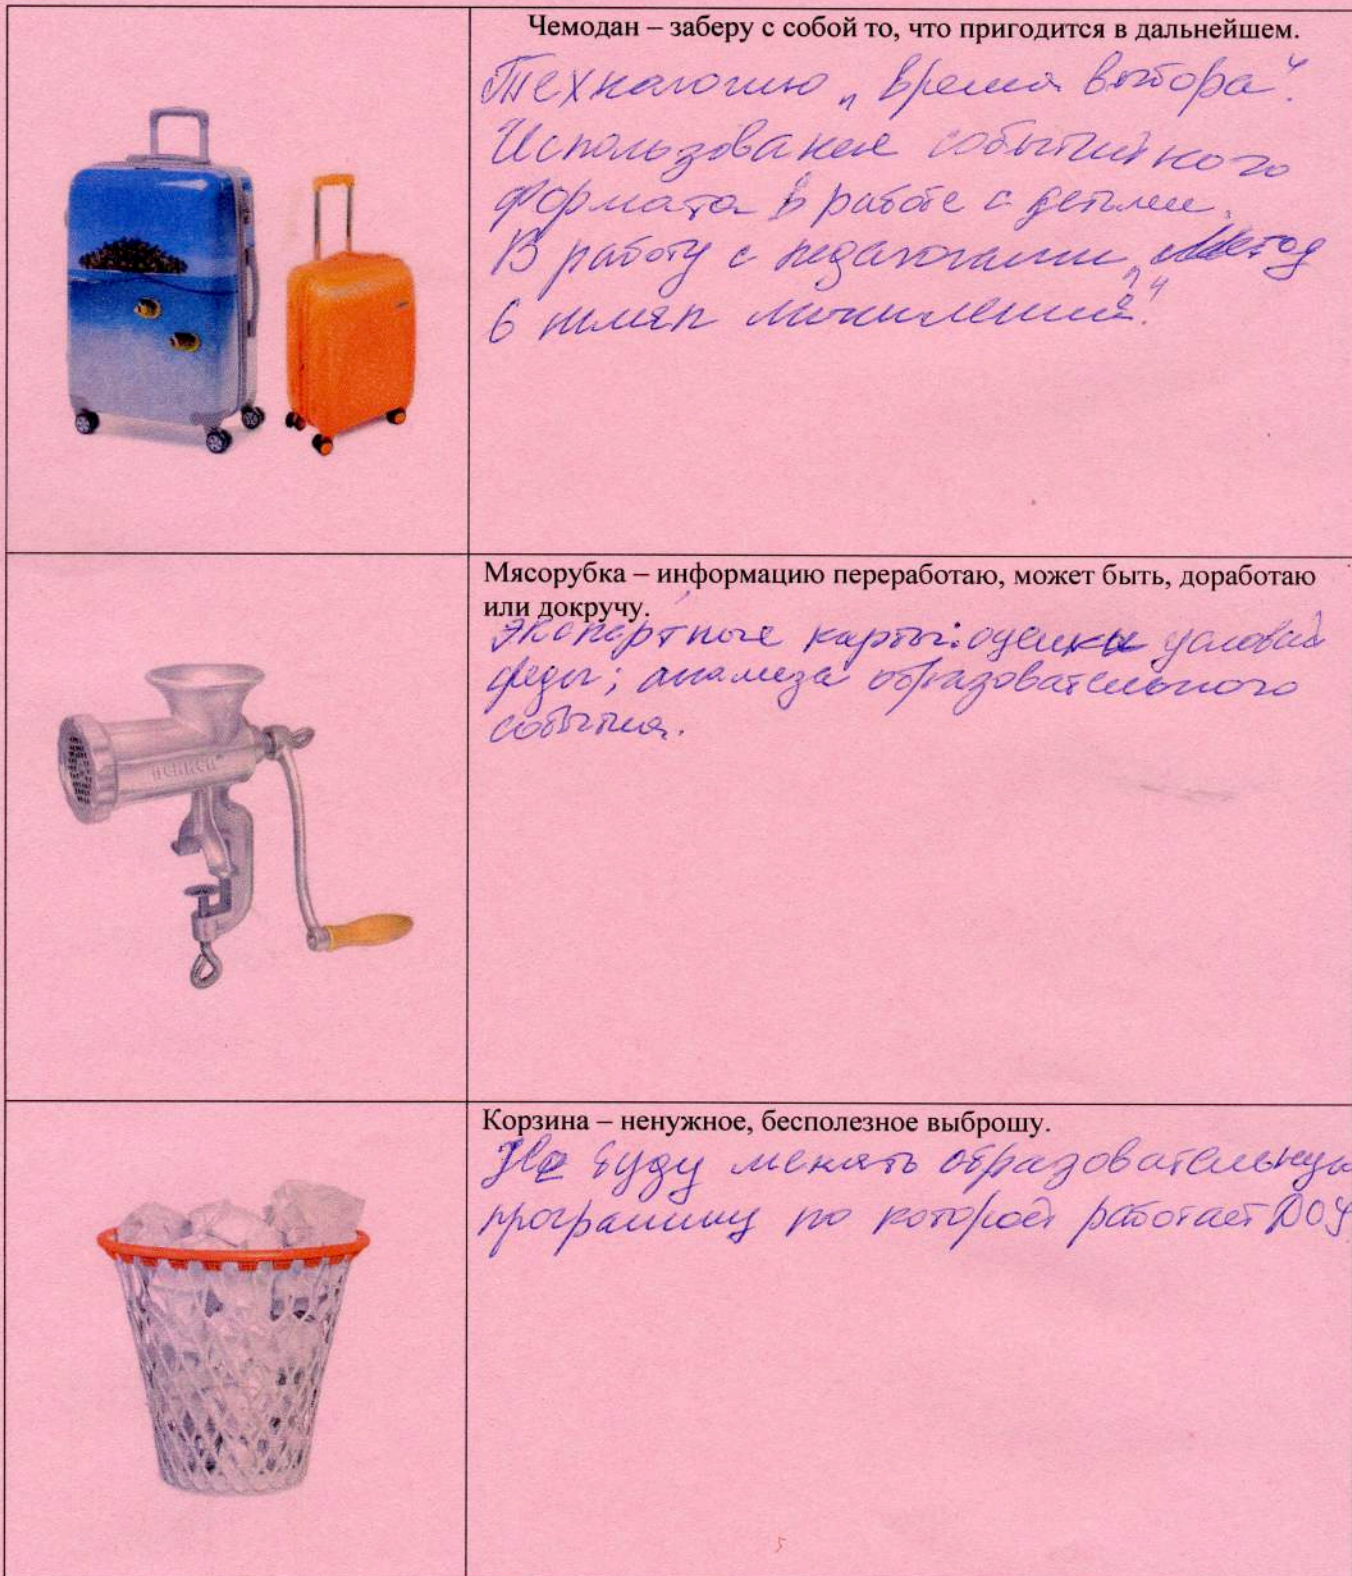 Чемодан – заберу с собой то, что пригодится в дальнейшем.
Технологию „Время выбора“.
Использование событийного
формата в работе с детьми.
В работу с педагогами „Метод
6 шляп мышления“.
Мясорубка – информацию переработаю, может быть, доработаю
или докручу.
Экспертные карты: оценки условий
среды; анализа образовательного
события.
Корзина – ненужное, бесполезное выброшу.
Не буду менять образовательную
программу по которой работает ДОУ